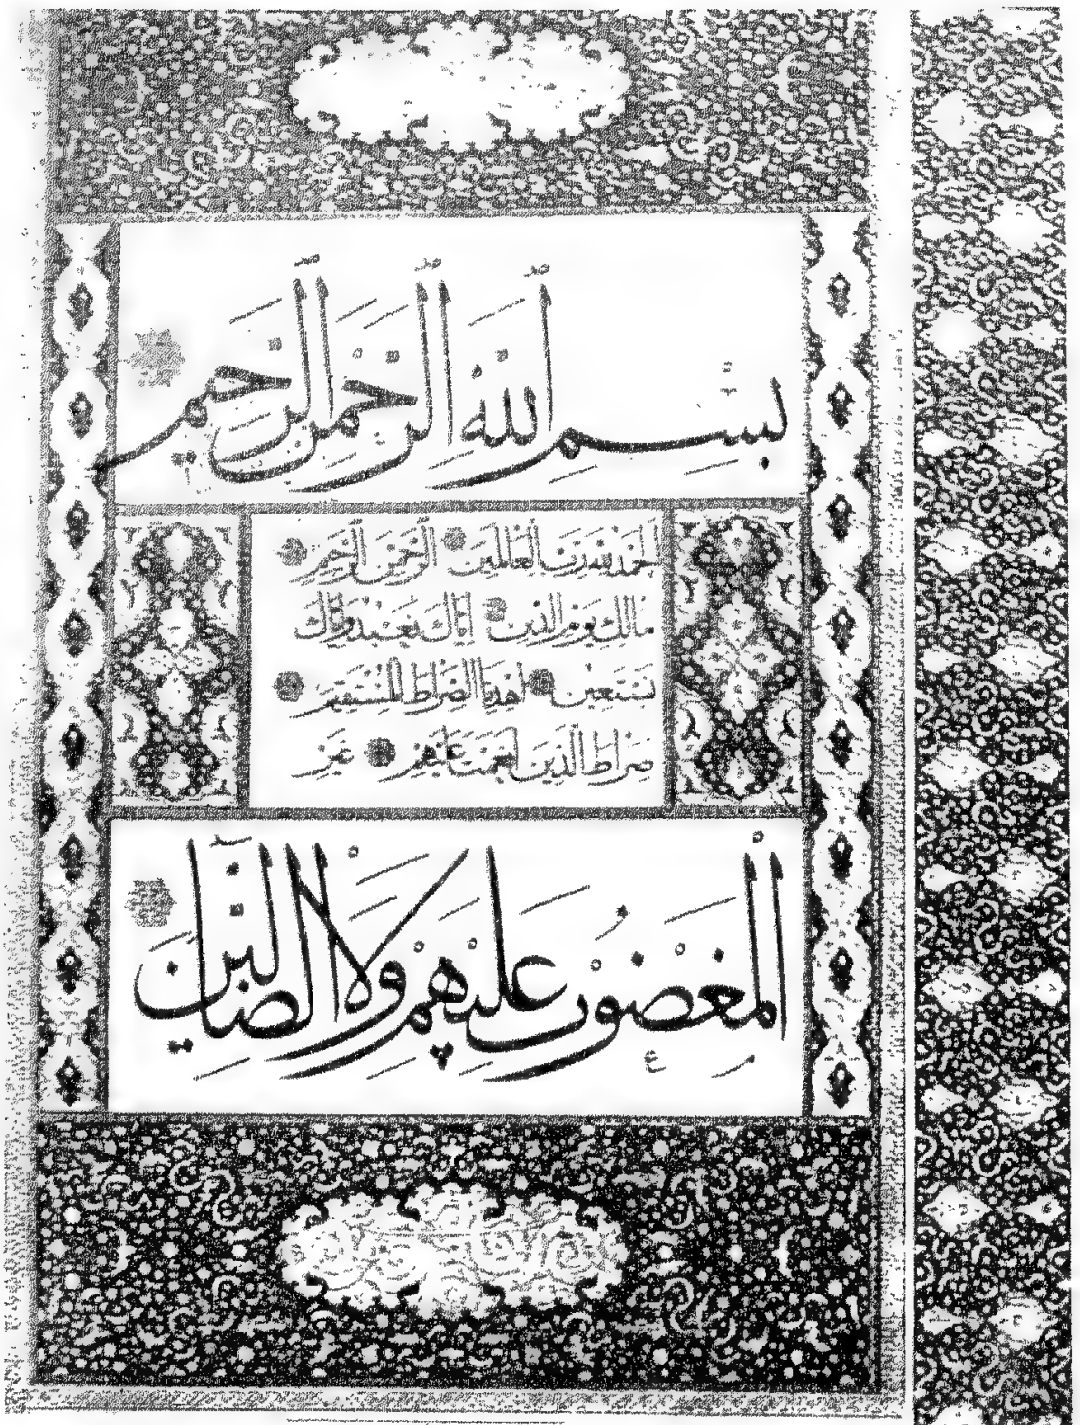 بِسْمِ ٱللَّهِ ٱلرَّحْمَٰنِ ٱلرَّحِيمِ
الحَمْدُ لِلّهِ رَبِّ العَالَمِينَ الرَّحْمٰنِ الرَّحِيمِ
مَالِكِ يَوْمِ الدِّينِ اِيَّاكَ نَعْبُدُ وَاِيَّاكَ
نَسْتَعِينُ اِهْدِنَا الصِّرَاطَ المُسْتَقِيمَ
صِرَاطَ الَّذِينَ اَنْعَمْتَ عَلَيْهِمْ غَيْرِ
الْمَغْضُوبِ عَلَيْهِمْ وَلَا الضَّالِّينَ